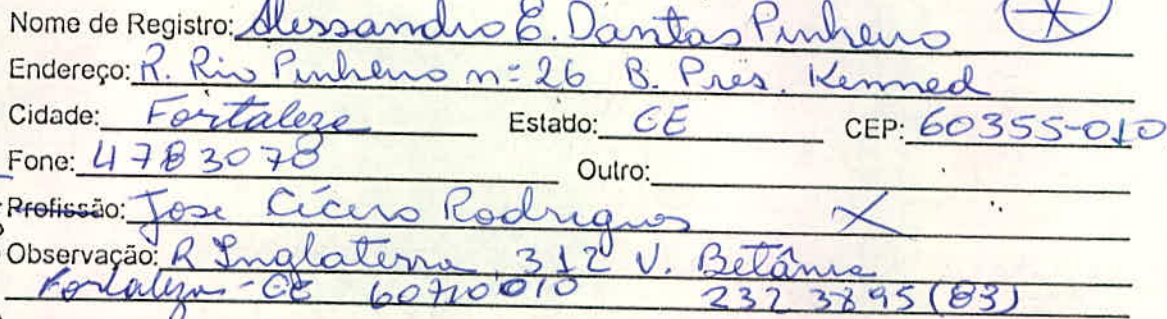 Nome de Registro: Alessandro E. Dantas Pinheiro
Endereço: R. Rio Pinheiro nº 26 B. Pres. Kenned
Cidade: Fortaleza Estado: CE CEP: 60355-010
Fone: 4783078 Outro:
Profissão: Jose Cícero Rodrigues X
Observação: R Inglaterra, 312 V. Betânia
Fortaleza-CE 60710010 232 3895 (83)